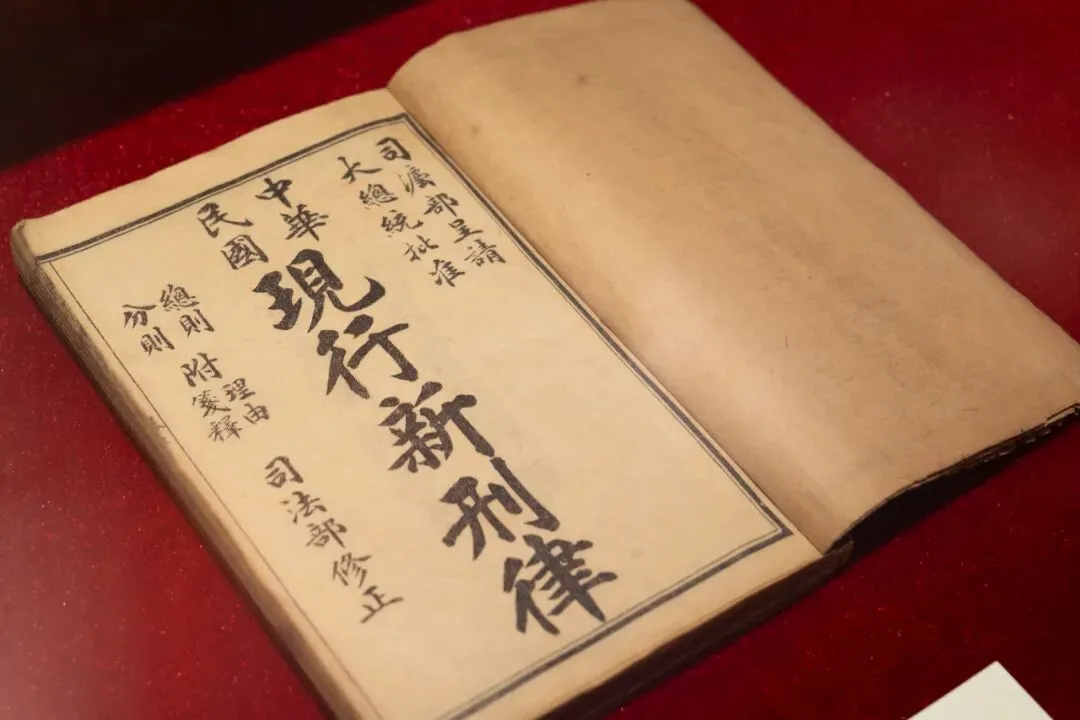 司瀍部呈請
大總統批准
中華
民國
現行新刑律
總則
分則
附
理由
箋釋
司法部修正